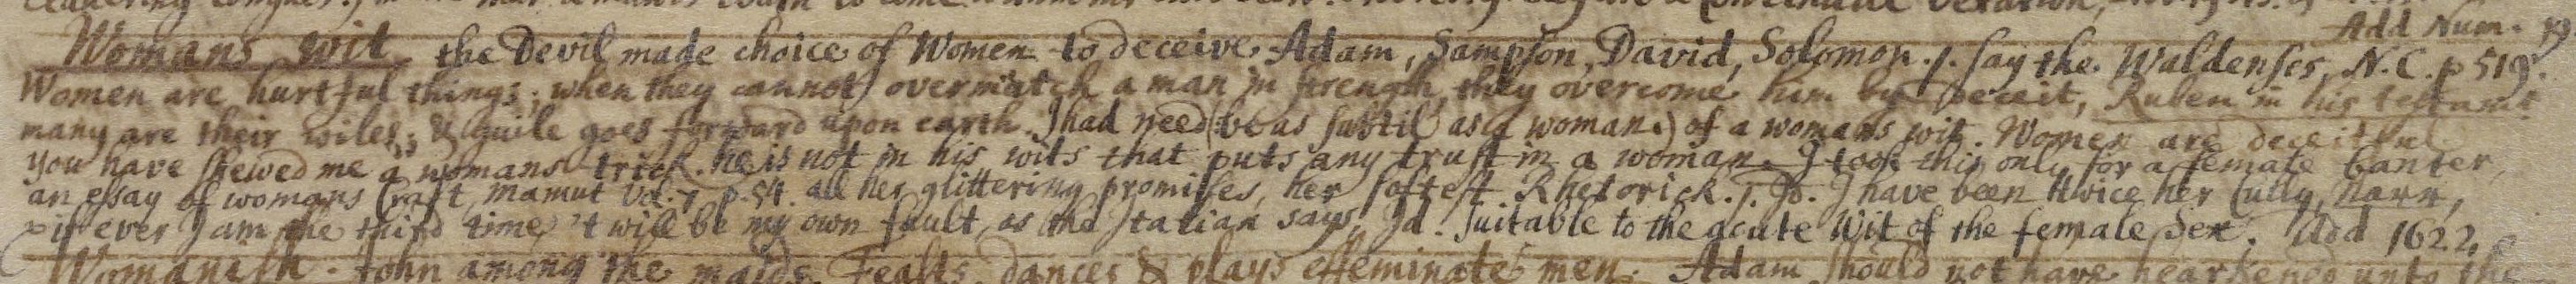 Add Num. 19.
Womans wit the Devil made choice of Women to deceive Adam, Sampson, David, Solomon. /. say the Waldenses, N.C. p 519.
Women are hurtful things; when they cannot overmatch a man in strength, they overcome him by Deceit, Ruben in his testamt
many are their wiles; & guile goes forward upon earth. I had need (be as subtil as a woman) of a womans wit. Women are deceitful
you have shewed me a womans trick. he is not in his wits that puts any trust in a woman. I took this only for a female banter,
an essay of womans Craft, Mamut Vol. 7 p. 54. all her glittering promises, her softest Rhetorick. I have been twice her Cully,
if ever I am the third time, 't will be my own fault, as the Italian says, Id. Suitable to the acute Wit of the female Sex. Add 1622,
Womanish. John among the maids. Feasts, dances & plays effeminate men. Adam should not have hearkened unto the